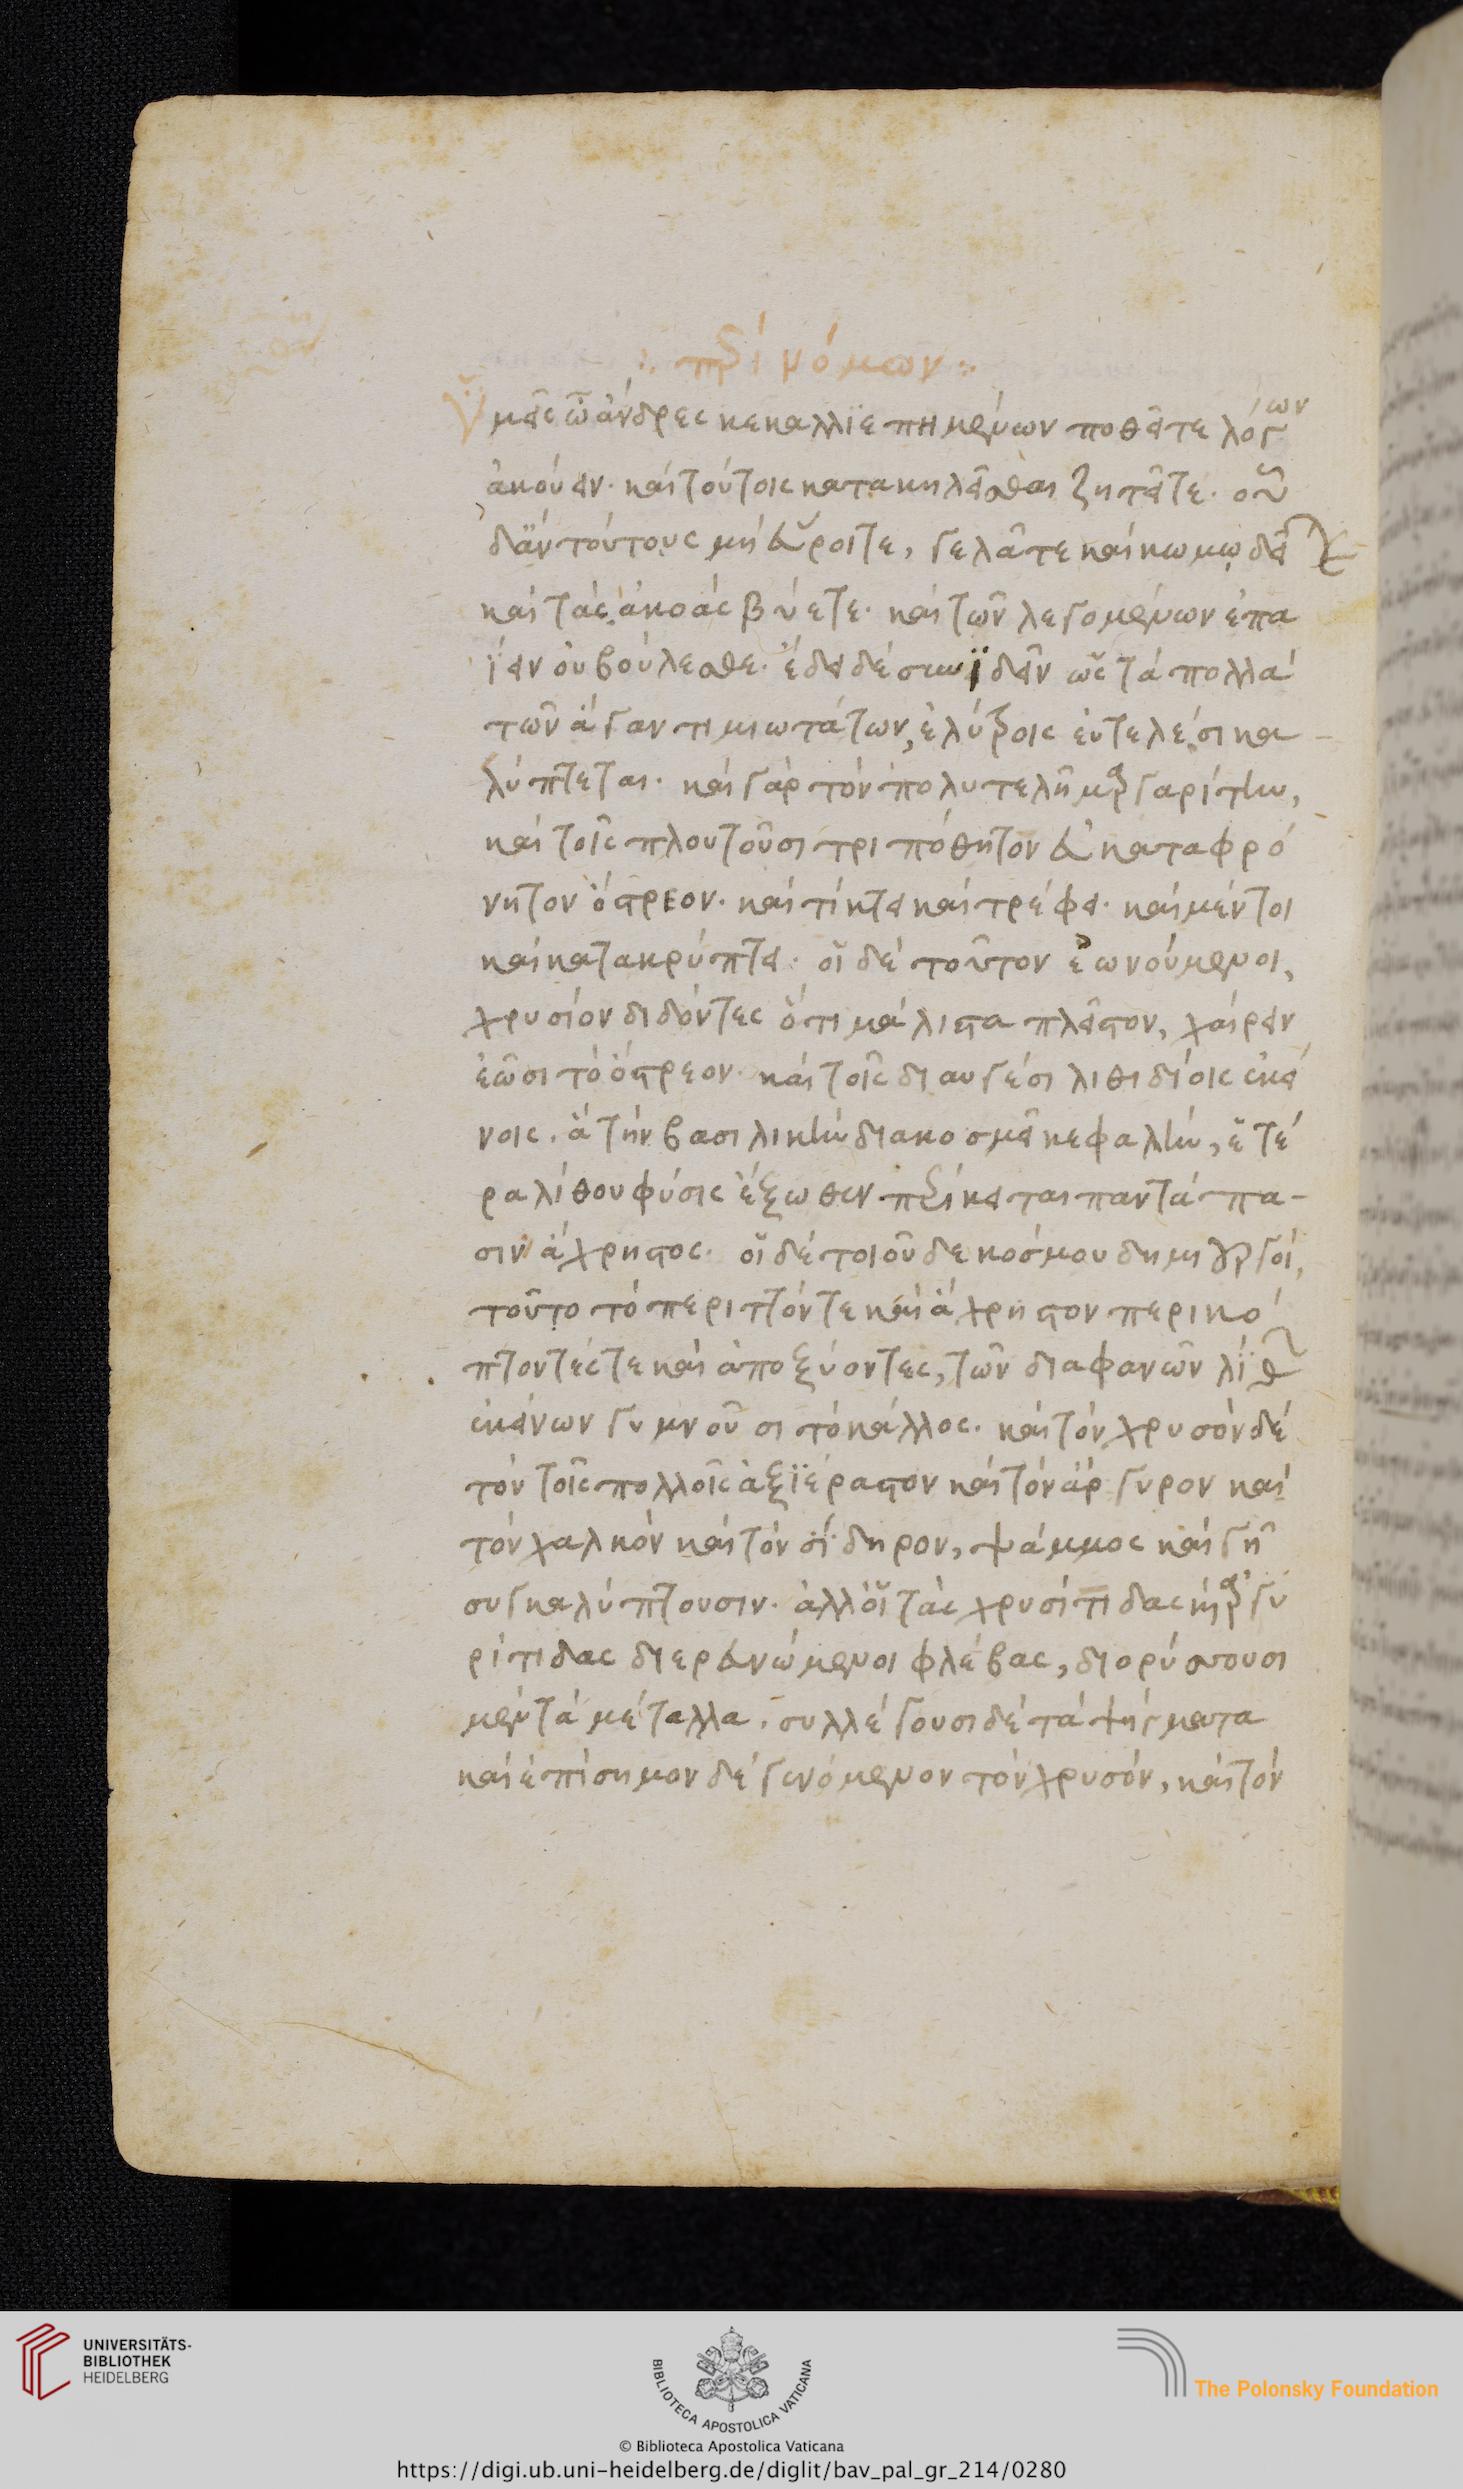 περὶ νόμων
Ὑμεῖς ὦ ἄνδρες κεκαλλιεπημένων ποθεῖτε λόγων
ἀκούειν· καὶ τούτοις κατακηλεῖσθαι ζητεῖτε· οὗ
δἂν τούτους μὴ εὕροιτε, γελᾶτε καὶ κωμωδεῖτε
καὶ τὰς ἀκοὰς βύετε· καὶ τῶν λεγομένων ἐπα
ΐειν οὐ βούλεσθε· ἔδει δὲ συνϊδεῖν ὡς τὰ πολλὰ
τῶν ἄγαν τιμιωτάτων, ἐλύτροις εὐτελέσι κα
λύπτεται· καὶ γὰρ τὸν πολυτελῆ μαργαρίτην,
καὶ τοῖς πλουτοῦσι τριπόθητον εὐκαταφρό
νητον ὄστρεον· καὶ τίκτει καὶ τρέφει· καὶ μέντοι
καὶ κατακρύπτει· οἱ δὲ τοῦτον ἐωνούμενοι,
χρυσίον διδόντες ὅτι μάλιστα πλεῖστον, χαίρειν
ἐῶσι τὸ ὄστρεον· καὶ τοῖς διαυγέσι λιθιδίοις ἐκεί
νοις. ἃ τὴν βασιλικὴν διακοσμεῖ κεφαλὴν, ἑτέ
ρα λίθου φύσις ἔξωθεν περίκειται παντάπα-
σιν ἄχρηστος· οἱ δὲ τοιοῦδε κόσμου δημιουργοὶ,
τοῦτο τὸ περιττόν τε καὶ ἄχρηστον περικό
πτοντές τε καὶ ἀποξύοντες, τῶν διαφανῶν λίθων
ἐκείνων γυμνοῦσι τὸ κάλλος. καὶ τὸν χρυσὸν δὲ
τὸν τοῖς πολλοῖς ἀξιέραστον καὶ τὸν ἄργυρον καὶ
τὸν χαλκὸν καὶ τὸν σίδηρον, ψάμμος καὶ γῆ
συγκαλύπτουσιν. ἀλλ' οἱ τὰς χρυσίτιδας κἀργυ
ρίτιδας διερευνώμενοι φλέβας, διορύττουσι
μὲν τὰ μέταλλα. συλλέγουσι δὲ τὰ ψήγματα
καὶ ἐπίσημον δὲ γενόμενον τὸν χρυσὸν, καὶ τὸν
UNIVERSITÄTS-
BIBLIOTHEK
HEIDELBERG
BIBLIOTECA APOSTOLICA VATICANA
© Biblioteca Apostolica Vaticana
The Polonsky Foundation
https://digi.ub.uni-heidelberg.de/diglit/bav_pal_gr_214/0280